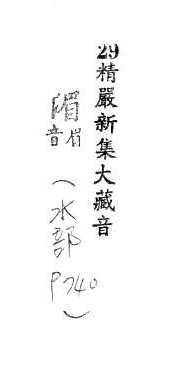 29精嚴新集大藏音
湄音眉(水部P740)